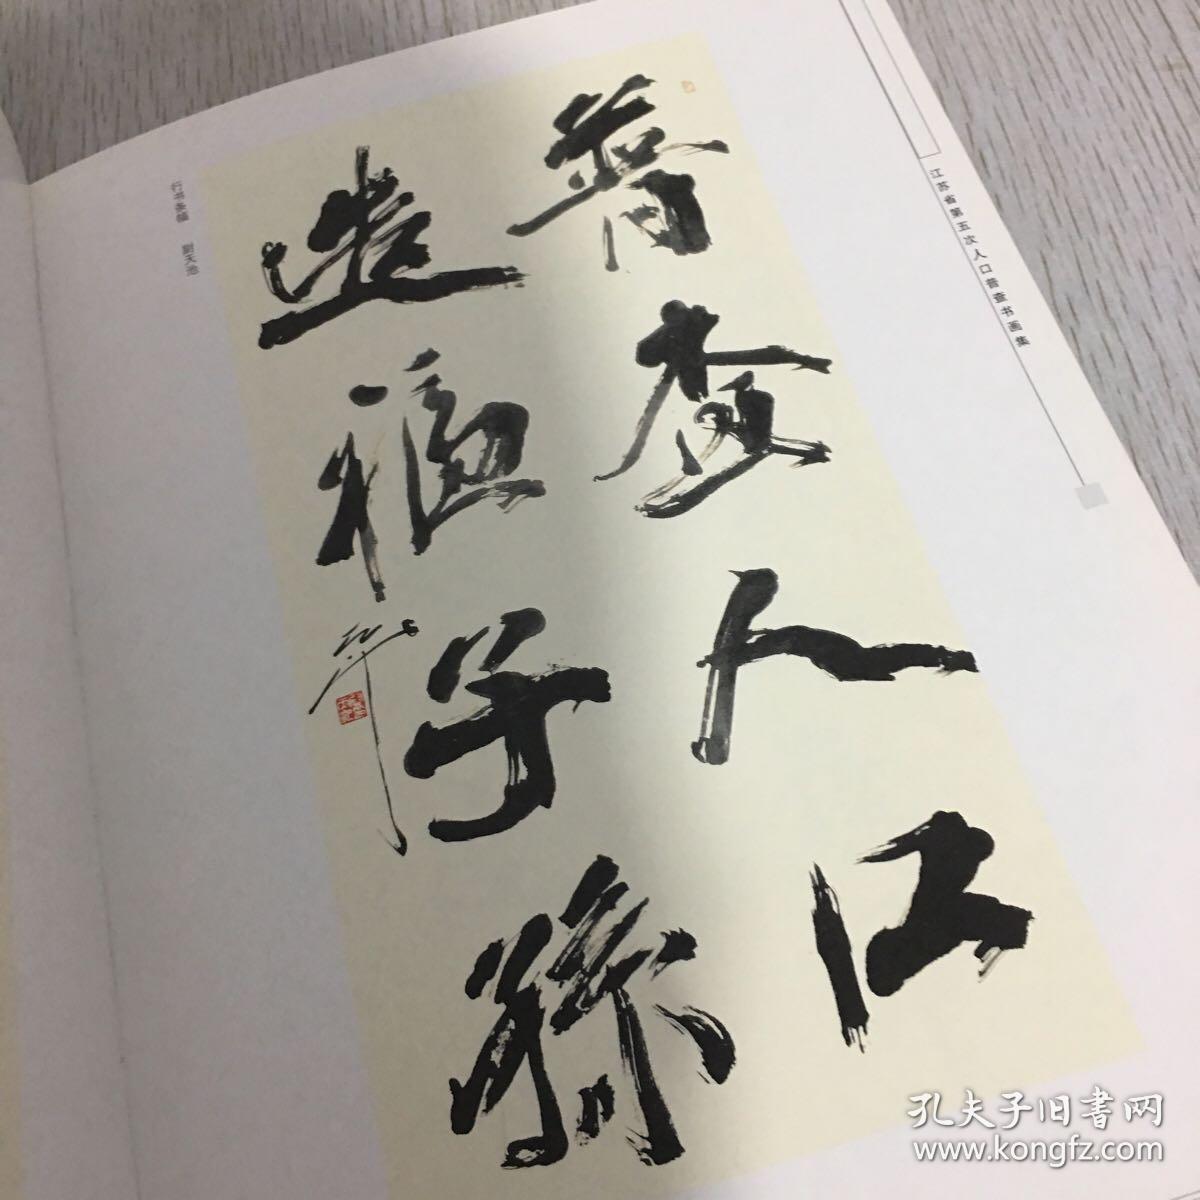 江苏省第五次人口普查书画集
普查人口
造福子孫
行书条幅 尉天池
孔夫子旧書网
www.kongfz.com